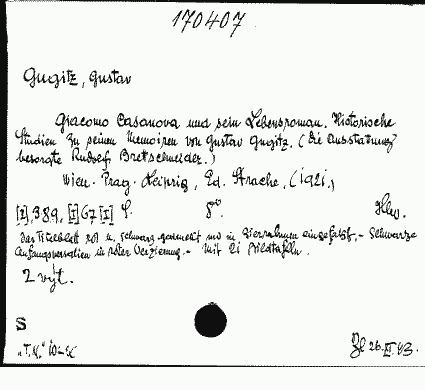 170407
Gugitz, Gustav
Giacomo Casanova und sein Lebensroman. Historische
Studien zu seinen Memoiren von Gustav Gugitz. (Die Ausstattung
besorgte Rudolf Bretschneider.)
Wien. Prag. Leipzig, Ed. Strache, (1921.)
[2], 389, [1] 67 [1] S. 8° Hlw.
Das Titelblatt rot u. schwarz gedruckt und in Zierrahmen eingefaßt. - Schwarze
Anfangsversalien in roter Verzierung. - Mit 21 Bildtafeln.
2 vyt.
S
26. XI. 43.